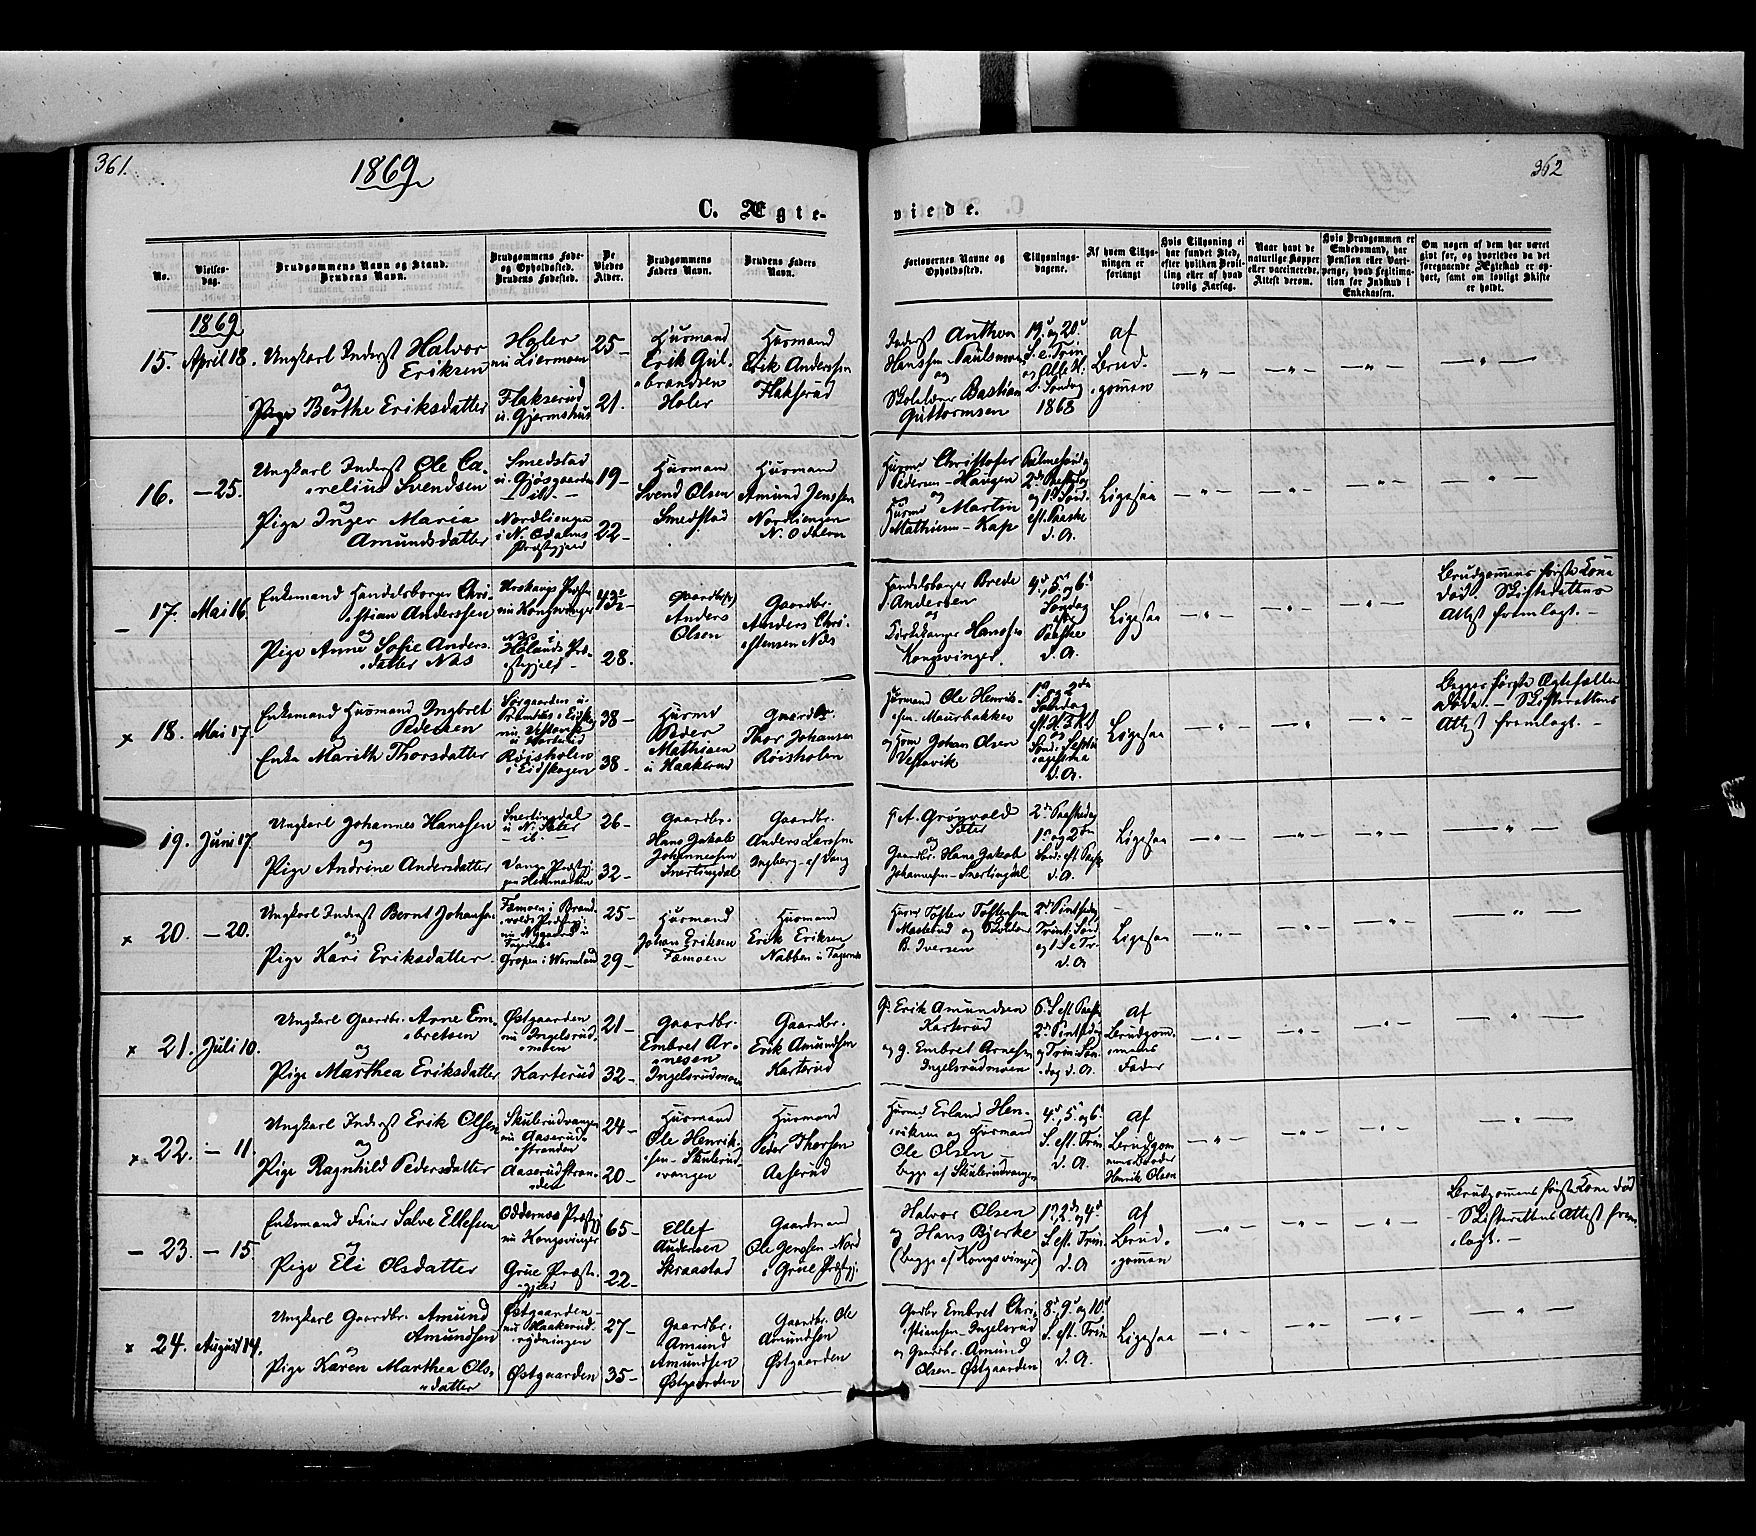 361.
1869
362
C. Ægte-
viede.
No.
Vielses-
dag.
Brudgommens Navn og Stand.
Brudens Navn.
Brudgommens Føde-
og Opholdssted.
Brudens Fødested.
De
Viedes
Alder.
Brudgommens
Faders Navn.
Brudens Faders
Navn.
Forlovernes Navne og
Opholdssted.
Tillysnings-
dagene.
Af hvem Tillys-
ningen er
forlangt
Hvis Tillysning ei
har fundet Sted,
efter hvilken Bevil-
ling eller af hvad
lovlig Aarsag.
Naar havt de
naturlige Kopper
eller vaccinerede.
Attest derom.
Hvis Brudgommen er
Embedsmand, har
Pension eller Vart-
penge, hvad Legitima-
tion for Indskud i
Enkekassen.
Om nogen af dem har været
gift før, og hvorledes da det
foregaaende Ægteskab er op-
hørt, samt om lovligt Skifte
er holdt.
1869
15. April 18.
Ungkarl Inderst Halvor
Eriksen
og
Pige Berthe Eriksdatter
Holer
nu Liermoen
Flakserud
u. Gjermshus
25-
21.
Husmand
Erik Gul-
brandsen
Holer
Husmand
Erik Anderssen
Flakserud
Inderst Anthon
Hanssen Paulsmoen
og
Skolelærer Bastian
Guttormsen
19d og 20d
S. e. Trin
og Alle H.
D. Søndag
1868
af
Brud-
gommen
16. -25.
Ungkarl Inderst Ole Ca-
relius Svendsen
og
Pige Inger Maria
Amundsdatter
Smedstad
u. Gjøsgaarden
- ib. -
Nordliengen
i N. Odalens
Præstegjeld
19-
22-
Husmand
Svend Olsen
Smedstad
Husmand
Amund Jenssen
Nordliengen
N. Odalen
Husmd Christofer
Pedersen-Haugen
og
Husmd Martin
Mathisen-Kap
Palmesønd.
2den Paaskedag
og 1ste Sønd.
eft. Paaske
d. A.
Ligesaa
17. Mai 16
Enkemand Handelsborger Chri-
stian Anderssen
og
Pige Anne Sofie Anders-
datter Næs
nu Kongsvinger
Næs i
Hølands Præ-
stegjeld -
43½
28.
Gaardbr.
Anders
Olsen
Gaardbr.
Anders Chri-
stensen Næs
Handelsborger Brede
Andersen
og
Kirkesanger Hanssen
Kongsvinger.
4de, 5te og 6te
Søndag
efter
Paaske
d. A.
Ligesaa
Brudgommens første Kone
død. Skifterettens
Attest fremlagt. -
x 18. Mai 17
Enkemand Husmand Ingbret
Pedersen
og
Enke Marith Thorsdatter
Røisholen
i Eidskogen
38-
38-
Husmd
Peder
Mathisen
u Haakerud
Gaardbr.
Thor Johansen
Røisholen
Husmand Ole Henrik-
sen-Maurbakken
og Husm Johan Olsen
Vestavik
1ste og 2den
Søndag
eft. H. 3 K.
og
Sønd. Septu-
agesima
d. A.
Ligesaa
Begges første Ægtefæller
døde. - Skifterettens
Attest fremlagt. -
19. Juni 17
Ungkarl Johannes Hanssen
og
Pige Andrine Andersdatter
Snertingdal
u N. Sæter
- ib. -
Vangs Præstegj.
paa Hedemarken
26-
32-
Gaardbr.
Hans Jakob
Johannessen
Snertingdal
Gaardbr.
Anders Larssen
Ingberg af Vang
F. A. Grønvold
og Sæter
Gaardbr. Hans Jakob
Johannessen-Snertingdal
2den Paaskedag
1ste og 2den
Sønd. eft. Paaske
d. A.
Ligesaa
x 20. -20.
Ungkarl Inderst Bernt Johansen
og
Pige Kari Eriksdatter.
Fæmoen i Brand-
volds Præstegj.
nu Nygaard u
Tagernes
Gropen i Wermland
25-
29-
Husmand
Johan Eriksen
Fæmoen
Husmand
Erik Eriksen
Nabben u Tagernes
Husmd Tosten Tostensen
Mastelund og Skolelær
B. Iversen
2den Pintsedag
Trinit. Sønd.
og 1 S. e. Tr.
d. A
Ligesaa
x 21. Juli 10.
Ungkarl Gaardbr. Arne Em-
bretsen
og
Pige Marthea Eriksdatter
Østgaarden
nu Ingelsrud-
moen
Karterud
21-
32-
Gaardbr.
Embret Ar-
nesen
Ingelsrudmoen
Gaardbr.
Erik Amundsen
Karterud
G. Erik Amundsen
Karterud
og G. Embret Arnesen
Ingelsrudmoen
6te S. eft. Paaske
2den Pintsedag
og Trin. Søn-
dag d. A.
af
Brudgom-
mens
Fader
x 22. - 11.
Ungkarl Inderst Erik Olsen
og
Pige Ragnhild Pedersdatter
Skulerudvangen
nu Aaserud-
stranden
Aaserudstran-
den
24-
20-
Husmand
Ole Henrik-
sen-Skulerud-
vangen
Husmand
Peder Thorsen
Aaserud
Husmd Erland Hen-
riksen og Husmand
Ole Olsen -
begge af Skulerudvangen
4de, 5te og 6te
S. eft. Trin.
d. A.
af
Brudgom-
mens Broder
Henrik Olsen
- 23. - 15.
Enkemand Feier Salve Ellefsen
og
Pige Eli Olsdatter
Oddernes Præstegj.
nu Kongsvinger
Grue Præste-
gjeld
65-
22-
Ellef
Andersen
Skraastad
Gaardmand
Ole Jenssen-Nord
i Grue Præstegj.
Halvor Olsen
og Hans Bjerke
(begge af Kongsvinger)
1ste, 2den og 4de
S. eft. Trin.
d. A
af
Brud-
gommen
Brudgommens første Kone død
- Skifterettens Attest frem-
lagt. -
x 24. August 14.
Ungkarl Gaardbr. Amund
Amundsen
og
Pige Karen Marthea Ols-
datter
Østgaarden-
nu Haakerud-
rydningen
Østgaarden
27-
35-
Gaardbr.
Amund
Amundsen
Østgaarden
Gaardbr. Ole
Amundsen
Østgaarden
Gaardbr Embret Chri-
stiansen-Ingelsrud
og Gaardbr. Amund
Olsen-Østgaarden
8de, 9de og 10de
S. eft. Trin
d. A.
Ligesaa